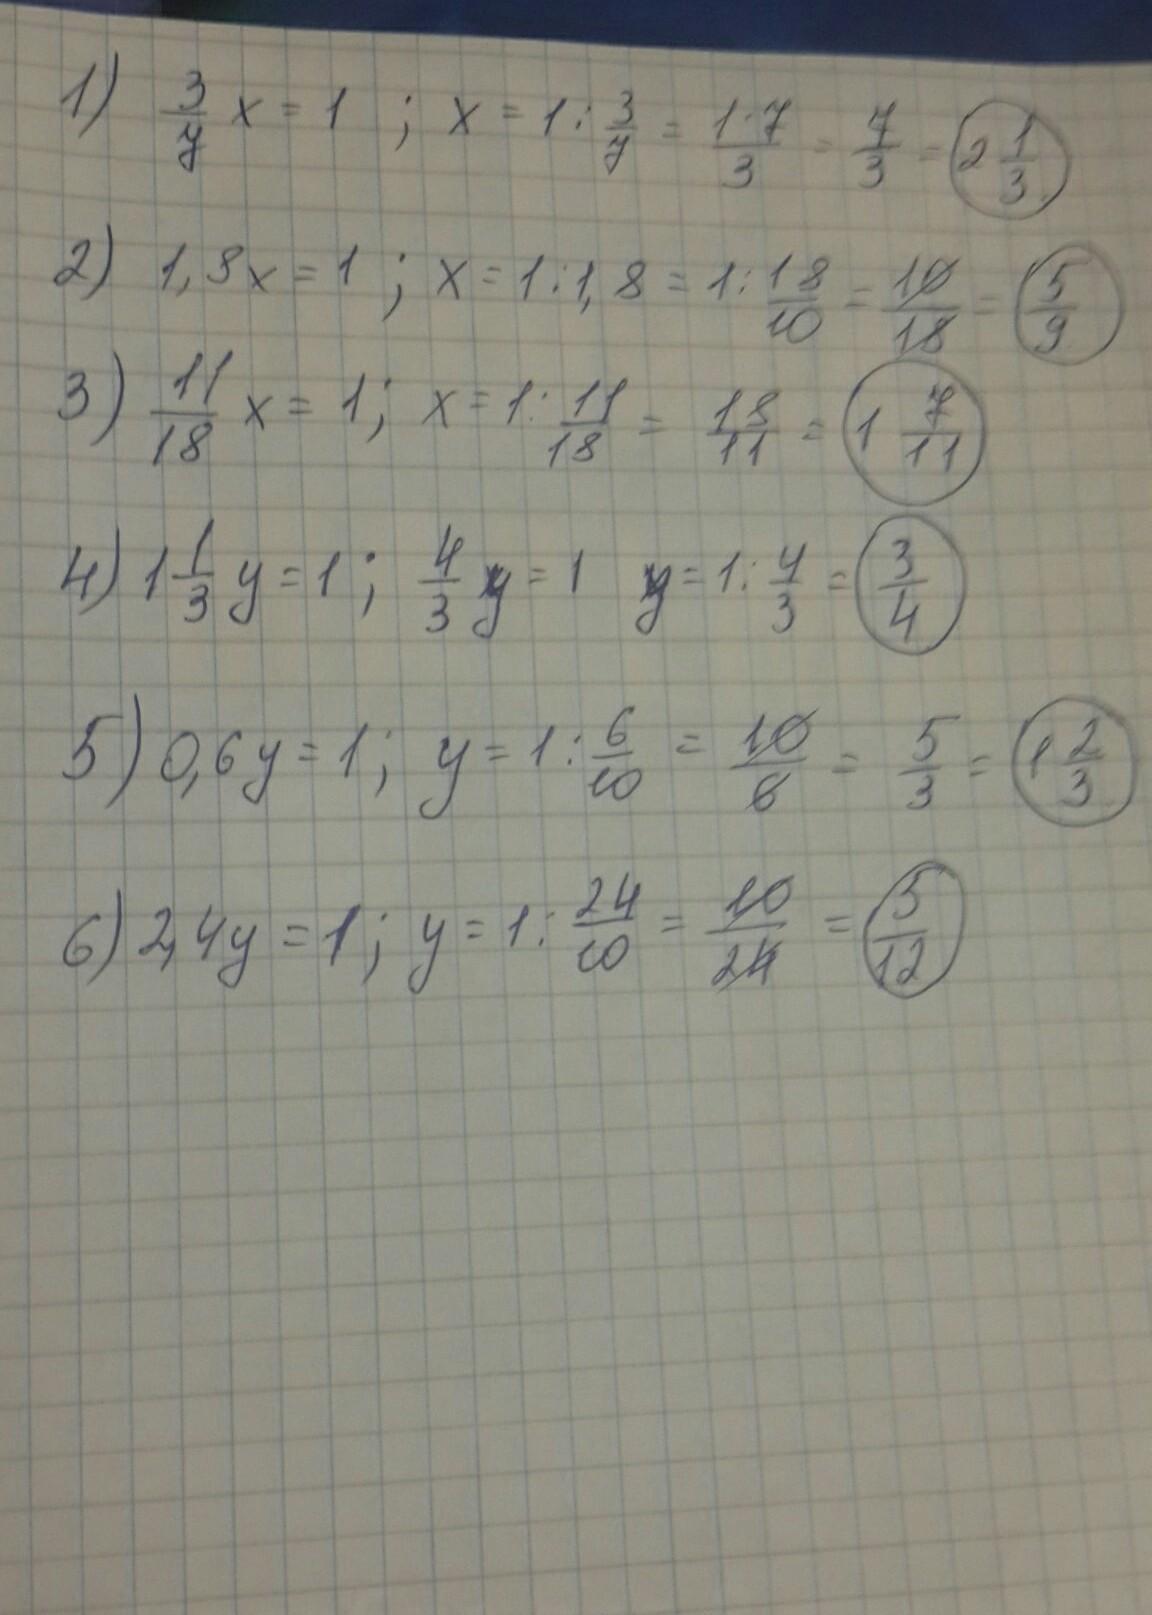 1) 3/7 x = 1 ; x = 1 : 3/7 = 1·7/3 = 7/3 = 2 1/3
2) 1,8x = 1 ; x = 1 : 1,8 = 1 : 18/10 = 10/18 = 5/9
3) 11/18 x = 1; x = 1 : 11/18 = 18/11 = 1 7/11
4) 1 1/3 y = 1 ; 4/3 y = 1 y = 1 : 4/3 = 3/4
5) 0,6y = 1; y = 1 : 6/10 = 10/6 = 5/3 = 1 2/3
6) 2,4y = 1; y = 1 : 24/10 = 10/24 = 5/12